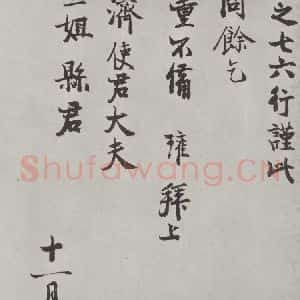 之七六行謹此
問餘乞
重不備 瑋拜上
濟使君大夫
二姐縣君
十一月
Shufawang.CN